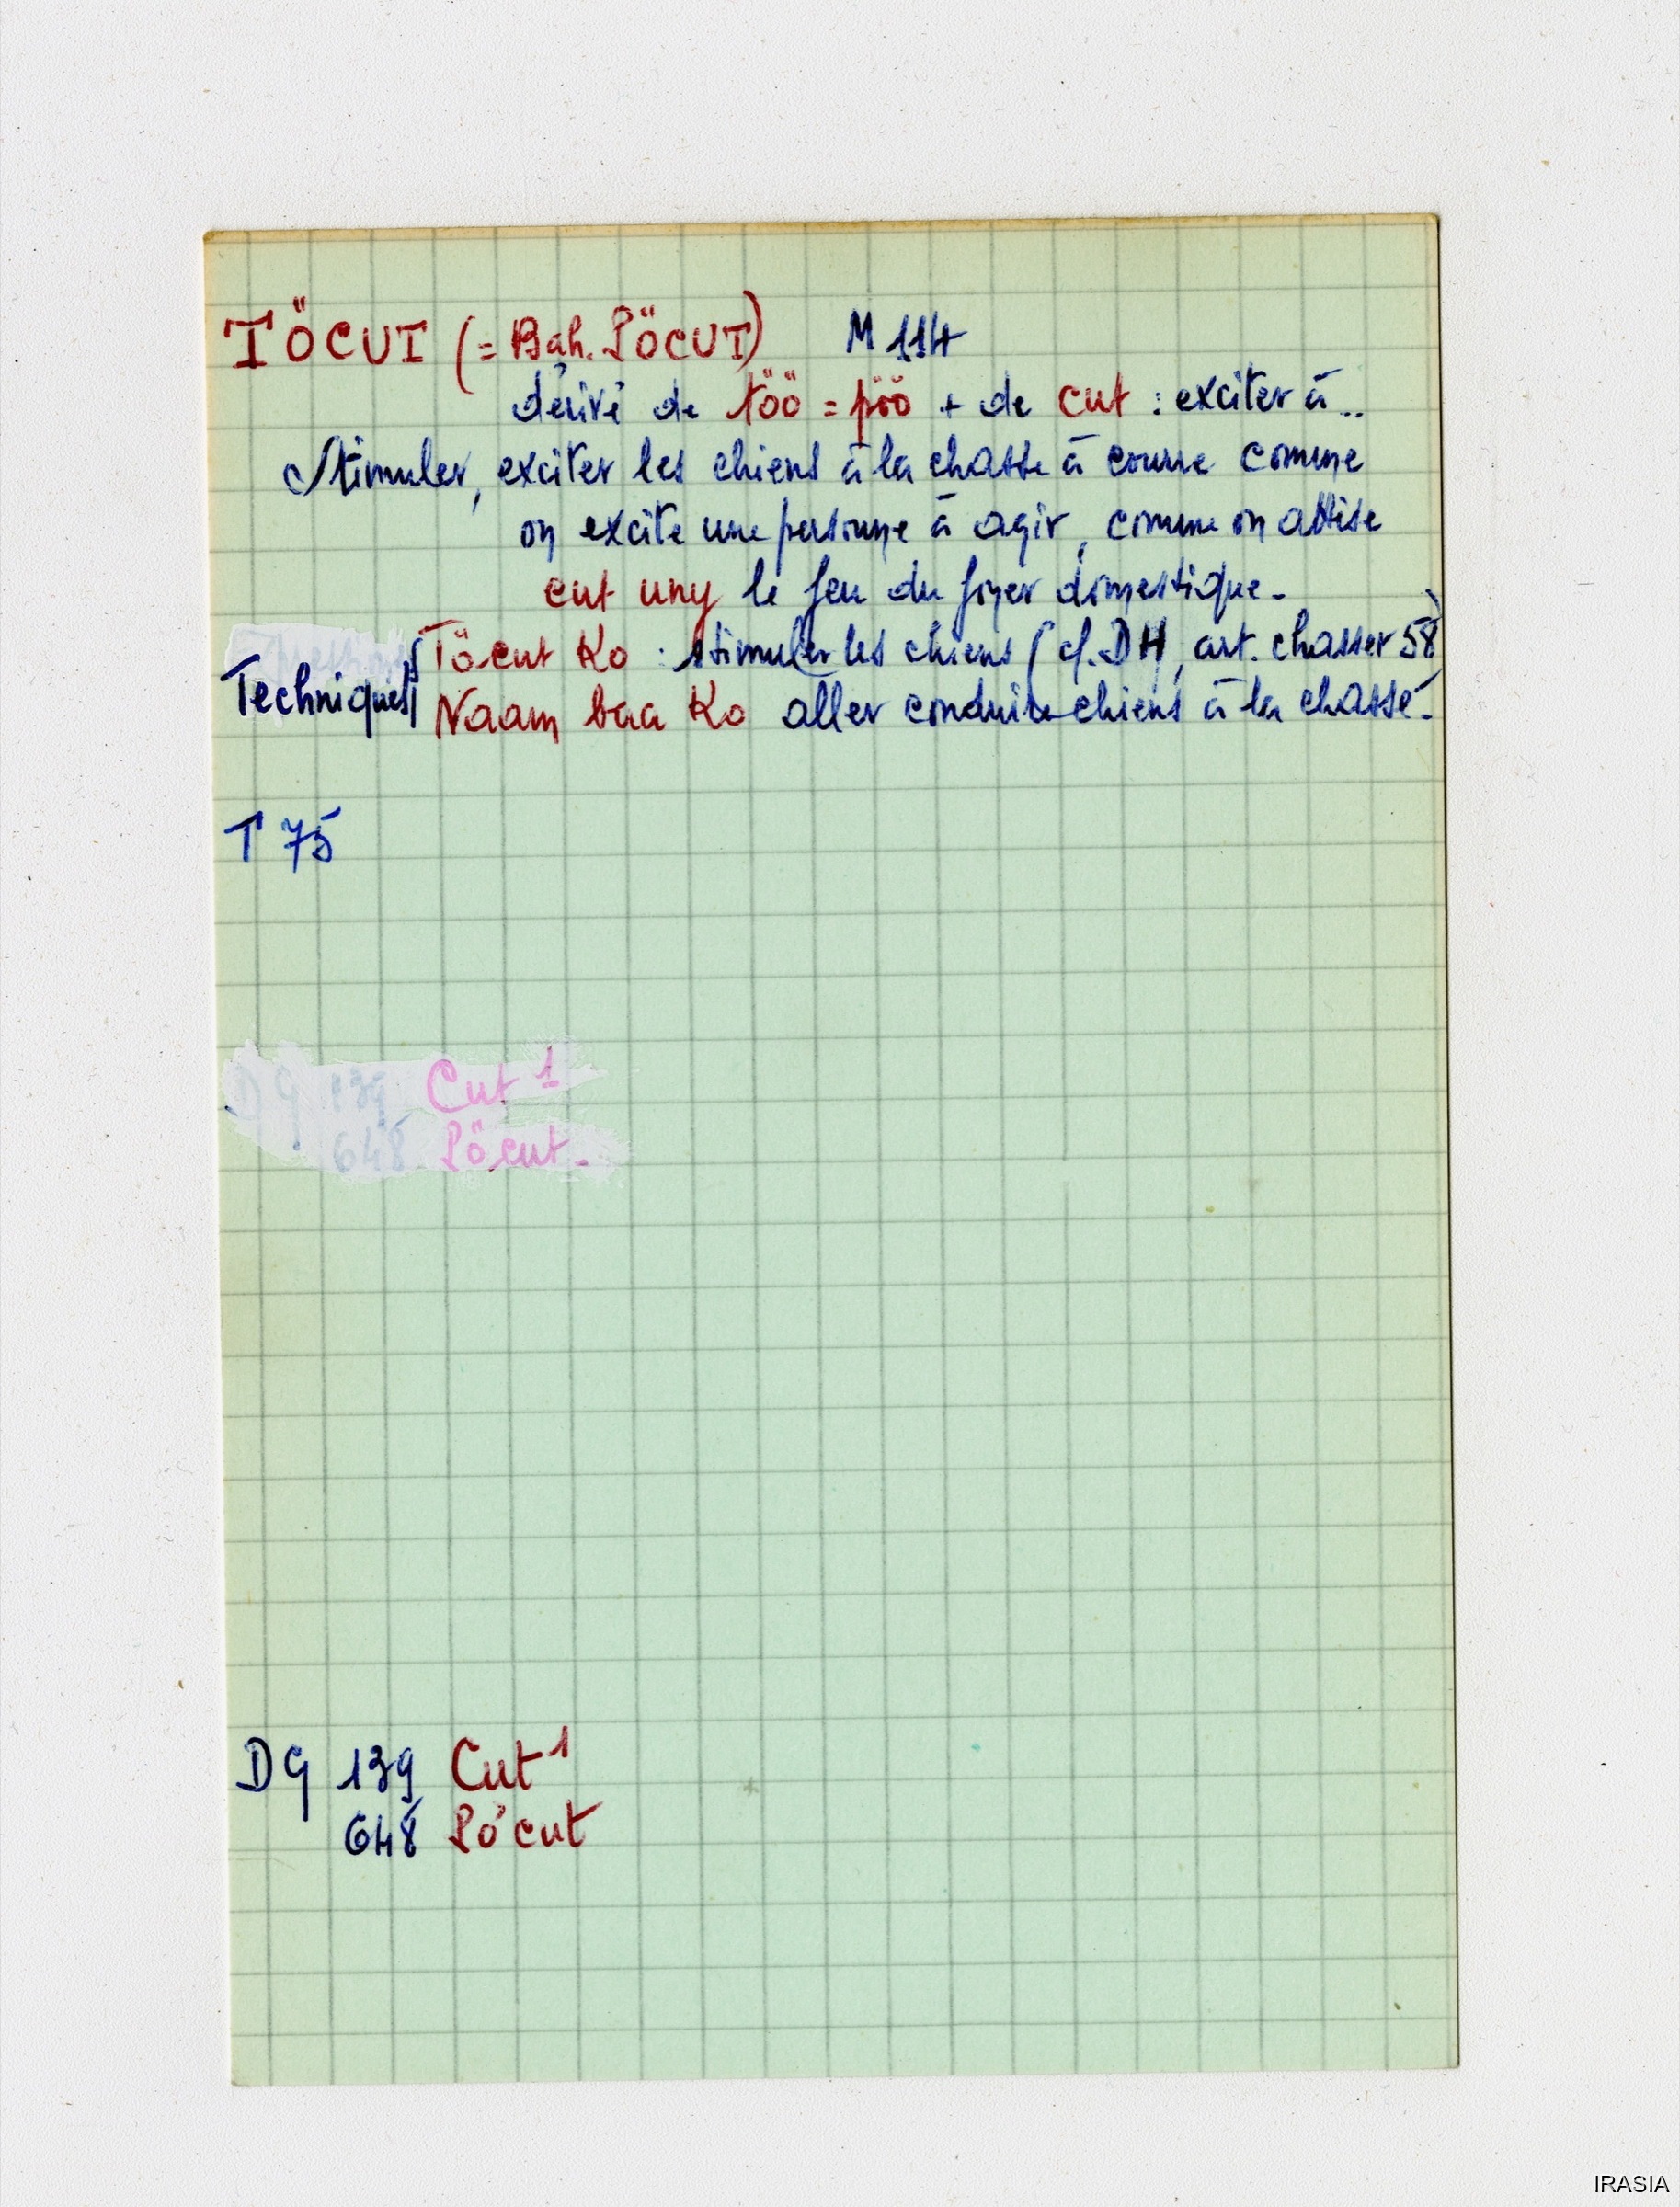 TÖCUT (= Bah. PÖCUT) M 114
dérivé de töö = pöö + de cut : exciter à ..
Stimuler, exciter les chiens à la chasse à courre comme
on excite une personne à agir, comme on attise
cut uny le feu du foyer domestique.
Töcut Ko : stimuler les chiens (cf. DH, art. chasser 58)
Techniques Naam baa Ko aller conduire chiens à la chasse.
T 75
DG 139 Cut 1
648 Pöcut.
DG 139 Cut 1
648 Pöcut
IRASIA